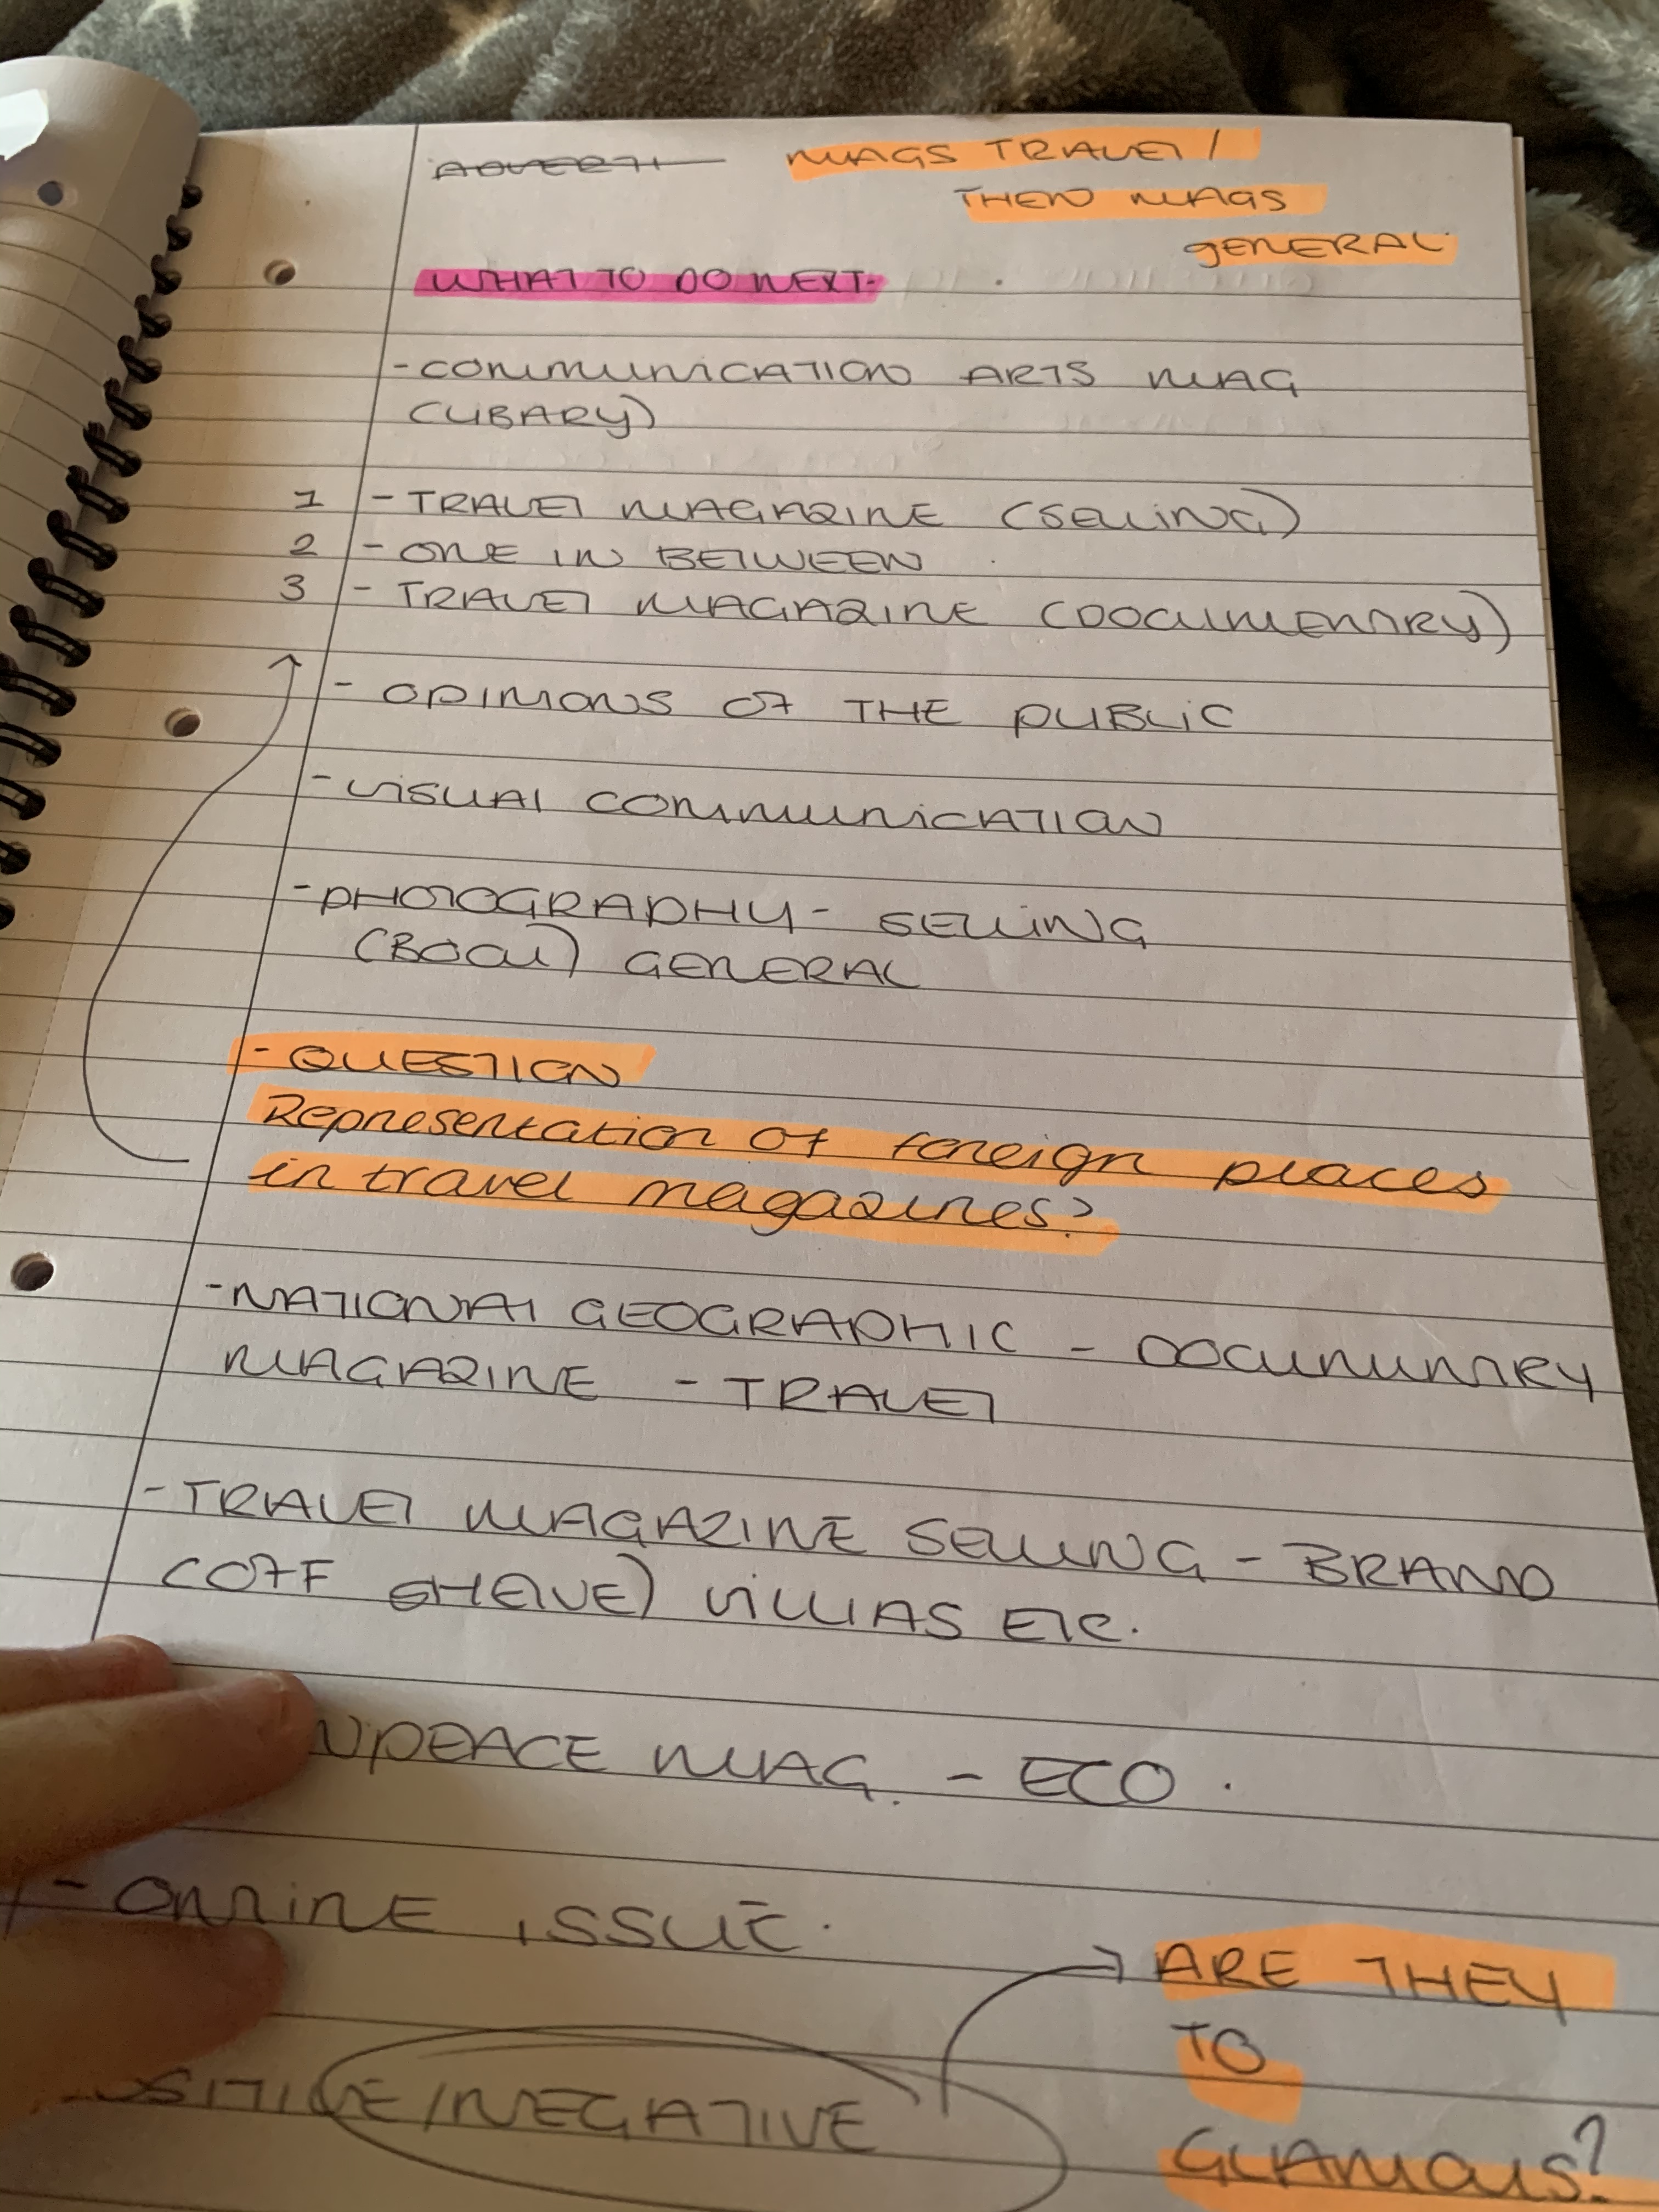 ADVERTI MAGS TRAVEL /
THEN MAGS
GENERAL
WHAT TO DO NEXT-
- COMMUNICATION ARTS MAG
(LIBARY)
1 - TRAVEL MAGAZINE (SELLING)
2 - ONE IN BETWEEN
3 - TRAVEL MAGAZINE (DOCUMENTRY)
- OPINIONS OF THE PUBLIC
- VISUAL COMMUNICATION
- PHOTOGRAPHY - SELLING
GENERAL
- QUESTION
Representation of foreign places
in travel magazines?
- NATIONAL GEOGRAPHIC - DOCUMUNTRY
MAGAZINE - TRAVEL
- TRAVEL MAGAZINE SELLING - BRAND
(OFF SHELVE) VILLIAS ETC.
NPEACE MAG. - ECO.
- ONLINE ISSUE.
OSITIVE/NEGATIVE
ARE THEY
TO
GLAMOUS?